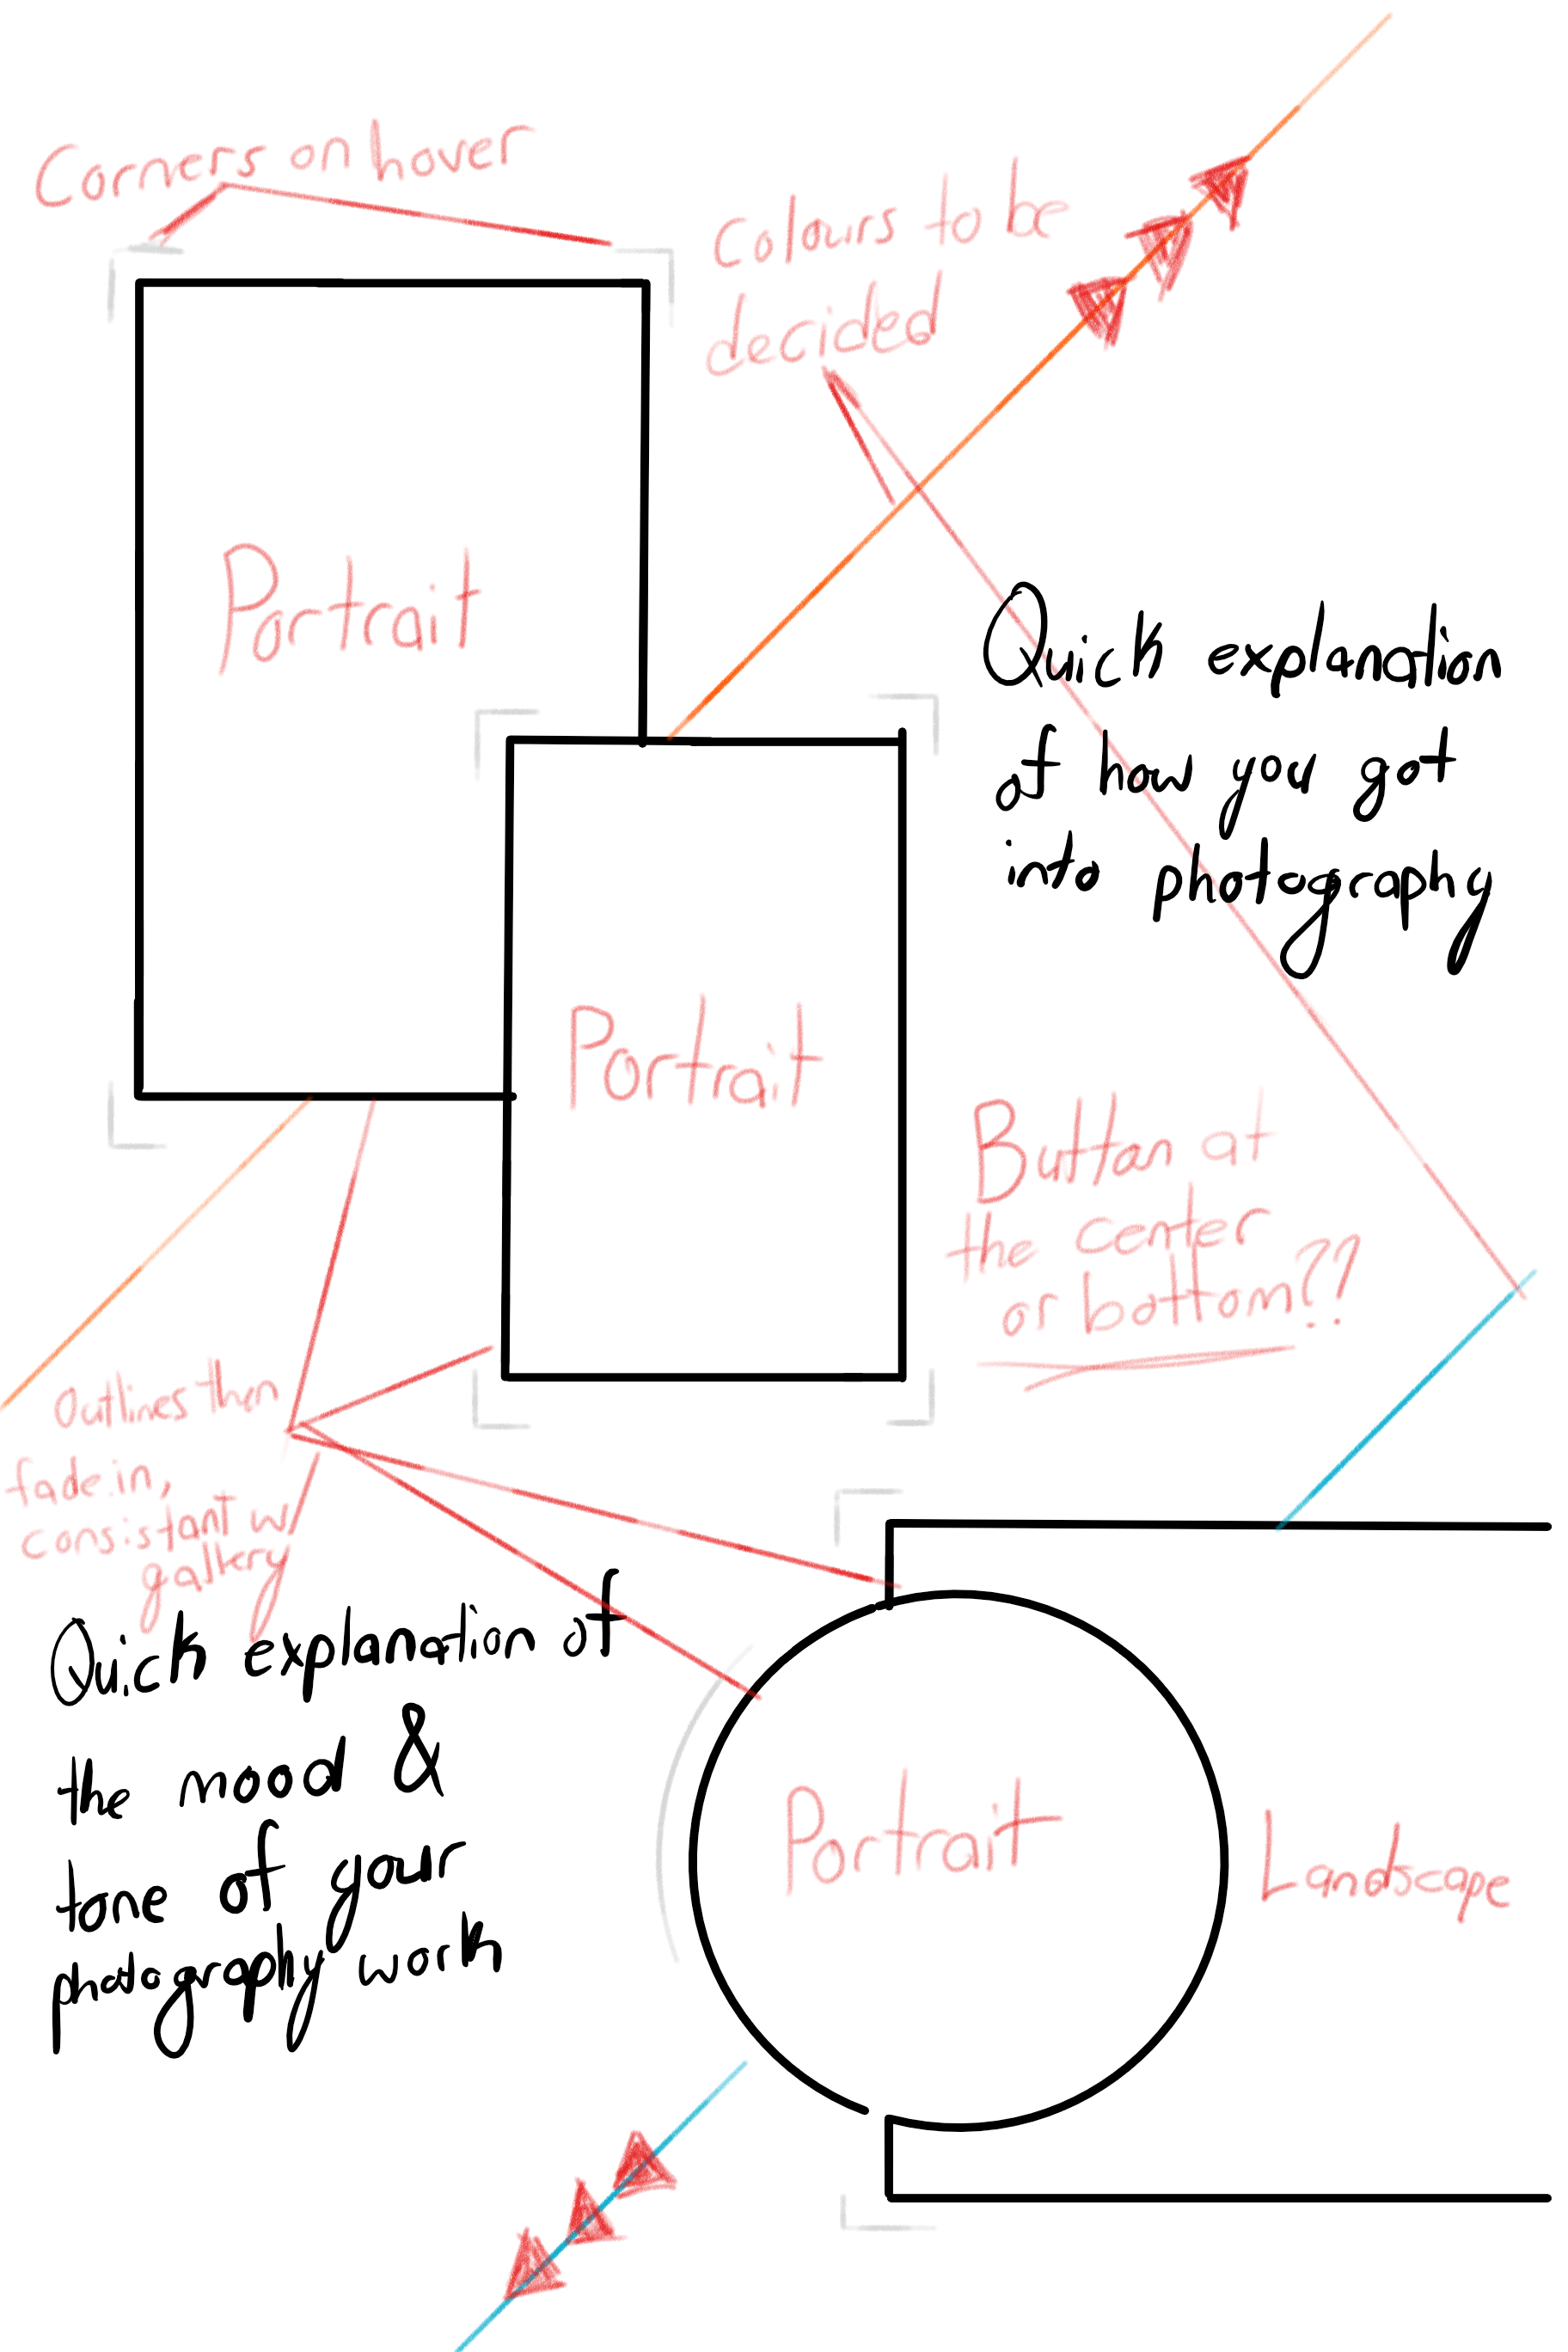 Corners on hover
Colours to be
decided
Portrait
Quick explanation
of how you got
into photography
Portrait
Button at
the center
or bottom??
Outlines then
fade in,
consistant w/
gallery
Quick explanation of
the mood &
tone of your
photography work
Portrait
Landscape